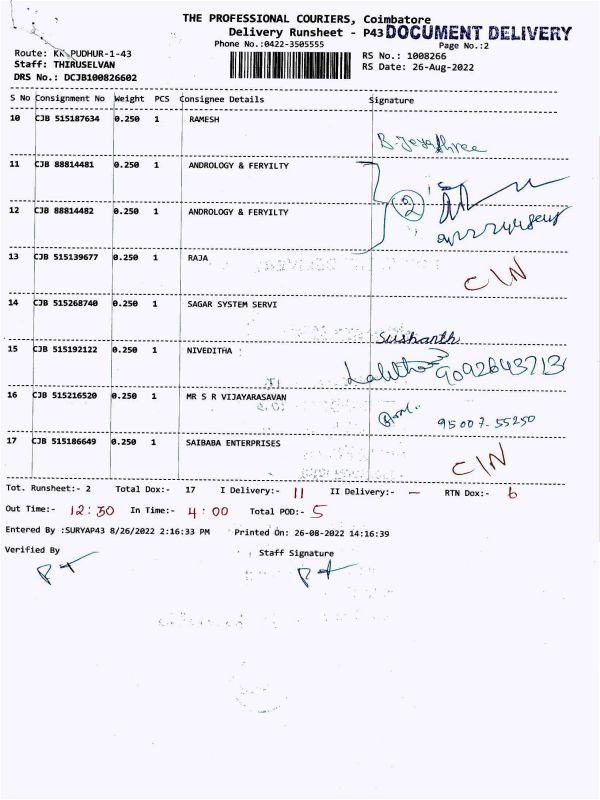 THE PROFESSIONAL COURIERS, Coimbatore
Delivery Runsheet - P43 DOCUMENT DELIVERY
Phone No.:0422-3505555 Page No.:2
Route: KK PUDHUR-1-43 RS No.: 1008266
Staff: THIRUSELVAN RS Date: 26-Aug-2022
DRS No.: DCJB100826602
S No Consignment No Weight PCS Consignee Details Signature
10 CJB 515187634 0.250 1 RAMESH
B. Jeyashree
11 CJB 88814481 0.250 1 ANDROLOGY & FERYILTY
2
12 CJB 88814482 0.250 1 ANDROLOGY & FERYILTY
13 CJB 515139677 0.250 1 RAJA
C/N
14 CJB 515268740 0.250 1 SAGAR SYSTEM SERVI
Sushanth
15 CJB 515192122 0.250 1 NIVEDITHA
Lalitha 9092643713
16 CJB 515216520 0.250 1 MR S R VIJAYARASAVAN
95007-55250
17 CJB 515186649 0.250 1 SAIBABA ENTERPRISES
C/N
Tot. Runsheet:- 2 Total Dox:- 17 I Delivery:- 11 II Delivery:- - RTN Dox:- 6
Out Time:- 12:30 In Time:- 4:00 Total POD:- 5
Entered By :SURYAP43 8/26/2022 2:16:33 PM Printed On: 26-08-2022 14:16:39
Verified By Staff Signature